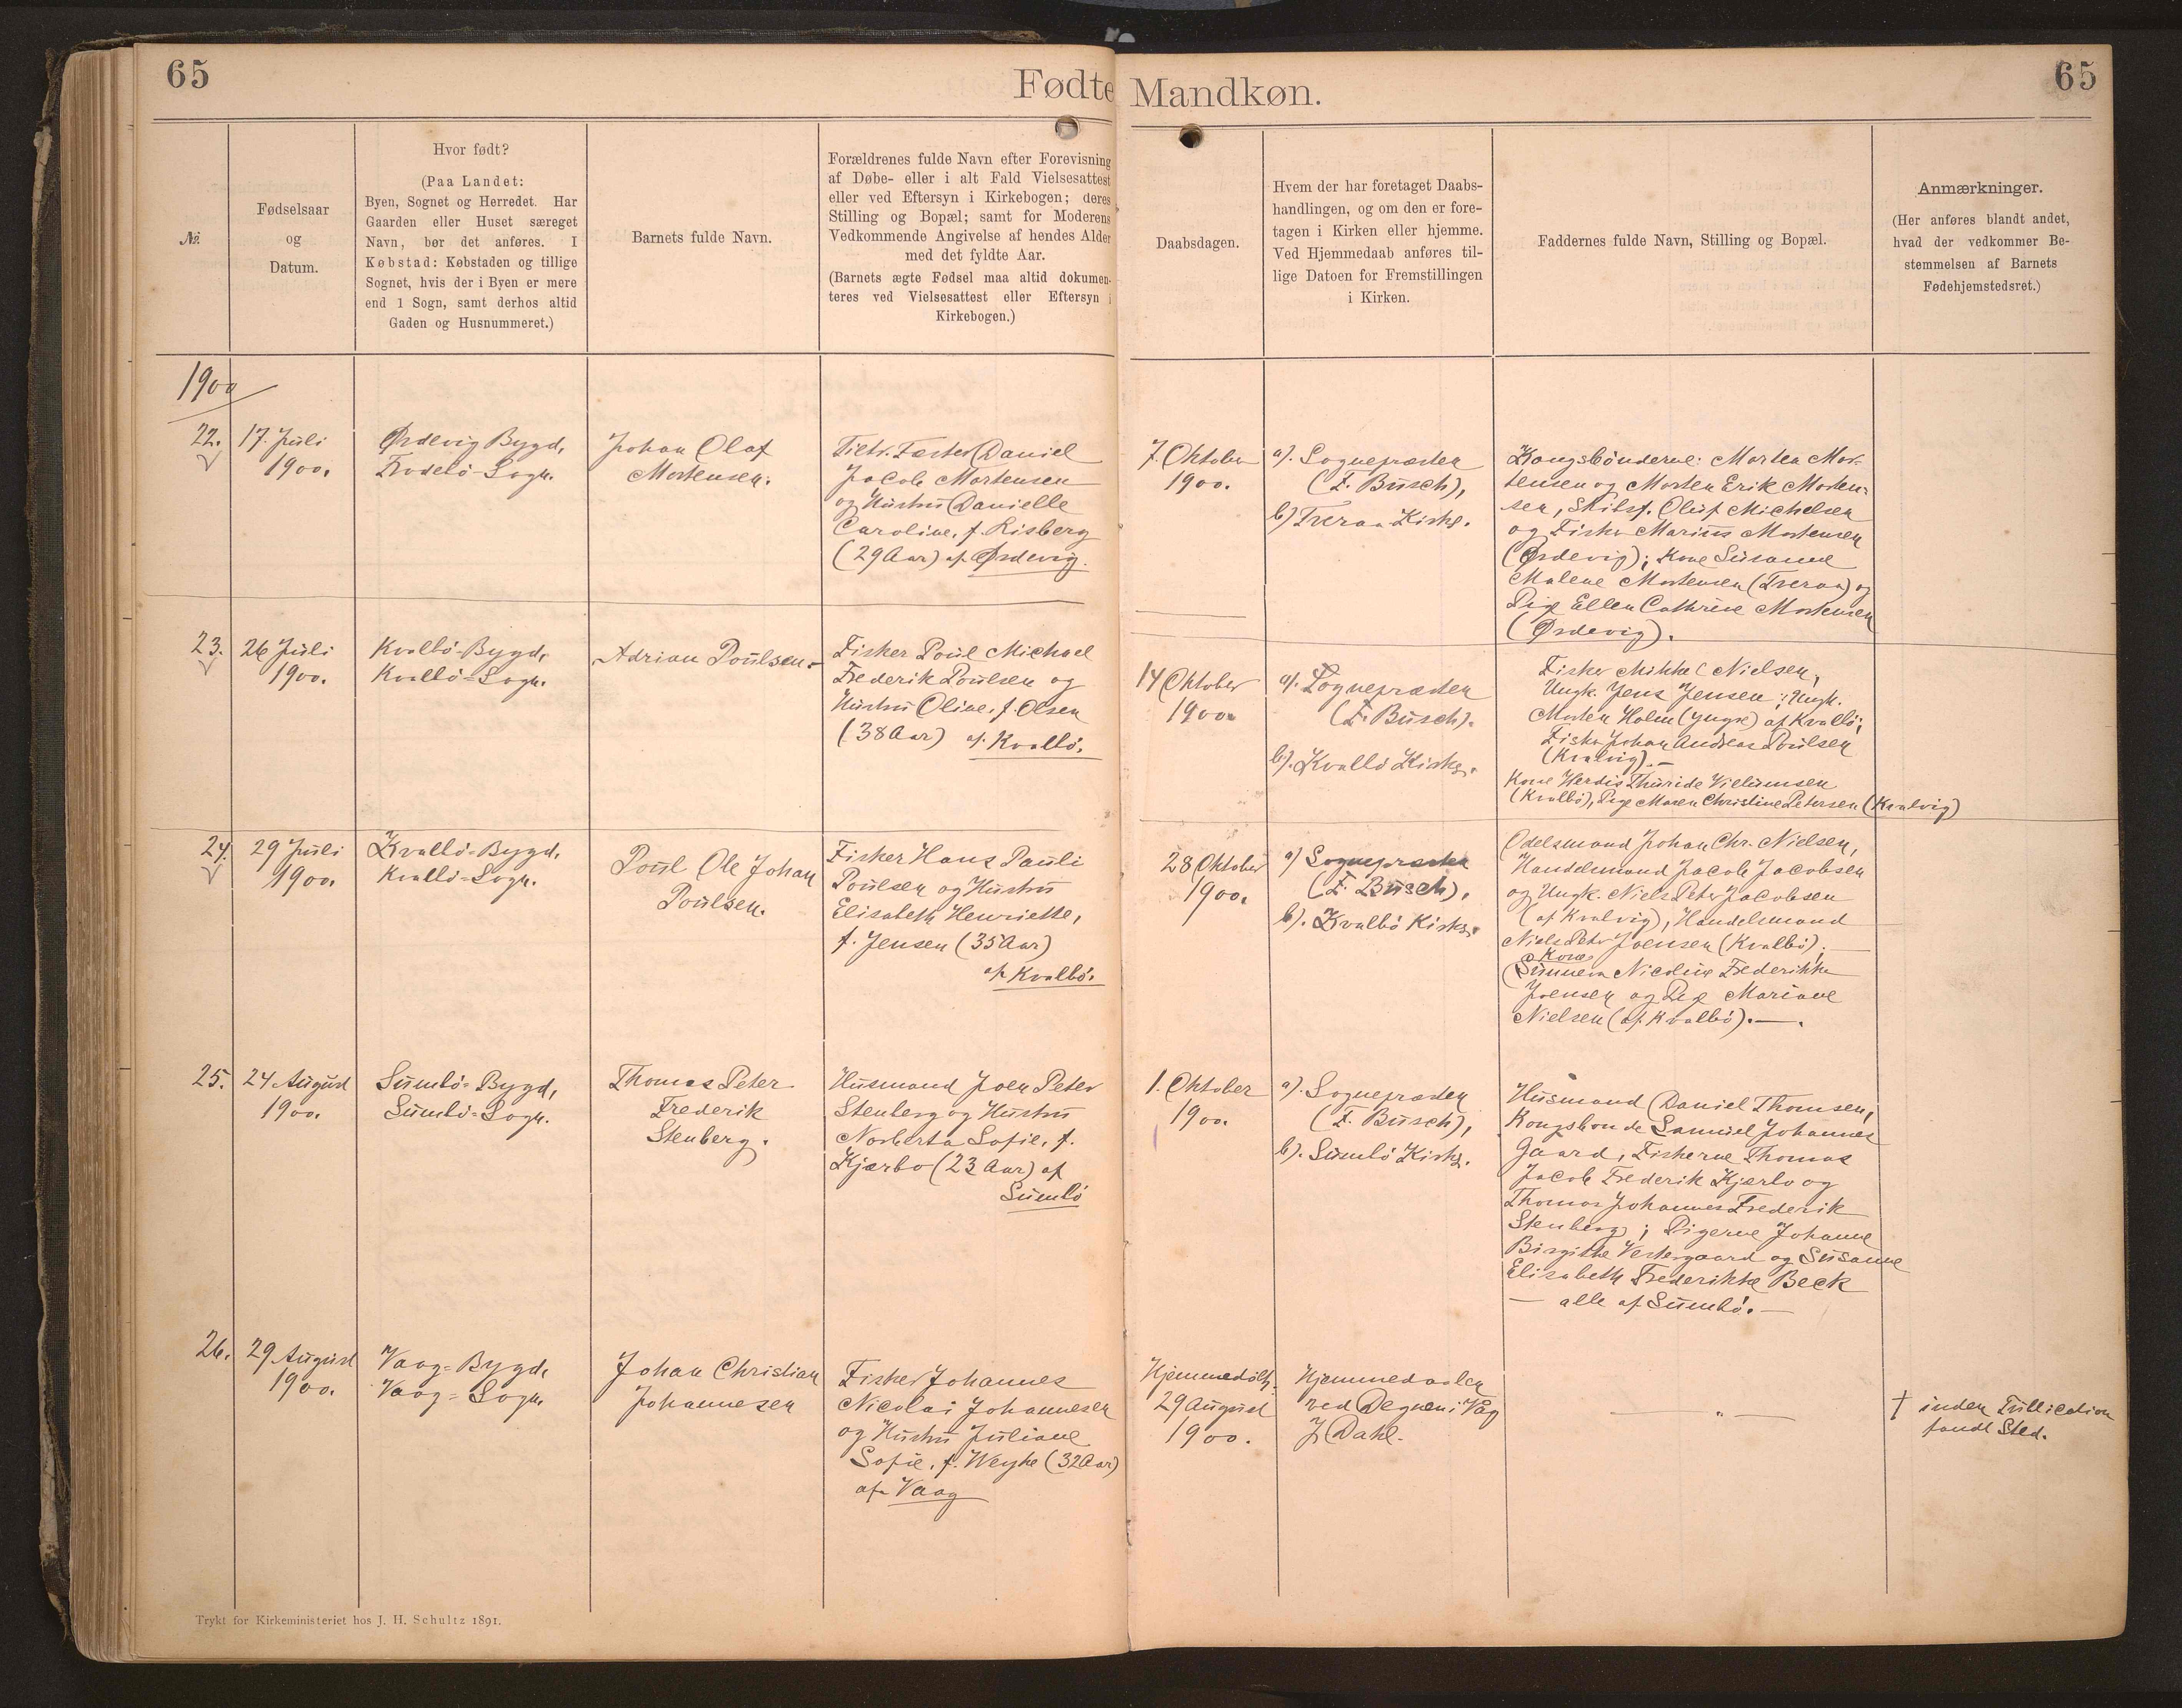 65
Fødte Mandkøn.
65
№.
Fødselsaar
og
Datum.
Hvor født?
(Paa Landet:
Byen, Sognet og Herredet. Har
Gaarden eller Huset særeget
Navn, bør det anføres. I
Købstad: Købstaden og tillige
Sognet, hvis der i Byen er mere
end 1 Sogn, samt derhos altid
Gaden og Husnummeret.)
Barnets fulde Navn.
Forældrenes fulde Navn efter Forevisning
af Døbe- eller i alt Fald Vielsesattest
eller ved Eftersyn i Kirkebogen; deres
Stilling og Bopæl; samt for Moderens
Vedkommende Angivelse af hendes Alder
med det fyldte Aar.
(Barnets ægte Fødsel maa altid dokumen-
teres ved Vielsesattest eller Eftersyn i
Kirkebogen.)
Daabsdagen.
Hvem der har foretaget Daabs-
handlingen, og om den er fore-
tagen i Kirken eller hjemme.
Ved Hjemmedaab anføres til-
lige Datoen for Fremstillingen
i Kirken.
Faddernes fulde Navn, Stilling og Bopæl.
Anmærkninger.
(Her anføres blandt andet,
hvad der vedkommer Be-
stemmelsen af Barnets
Fødehjemstedsret.)
1900
22.
17. Juli
1900.
Ørdevig Bygd,
Frodebø-Sogn.
Johan Olaf
Mortensen.
Fæster Daniel
Jacob Mortensen
og Hustru Danielle
Caroline, f. Risberg
(29 Aar) af Ørdevig.
7. Oktober
1900.
a). Sognepræsten
(F. Busch),
b) Tveraa Kirke.
Kongsbønderne: Morten Mor-
tensen og Morten Erik Morten-
sen, Skibsf. Oluf Michelsen
og Fisker Marius Mortensen
(Ørdevig); Kone Susanne
Malene Mortensen (Tveraa) og
Pige Ellen Cathrine Mortensen
(Ørdevig).
23.
26 Juli
1900.
Kvalbø-Bygd,
Kvalbø-Sogn.
Adrian Poulsen.
Fisker Poul Michael
Frederik Poulsen og
Hustru Oline, f. Olsen
(38 Aar) af Kvalbø.
14 Oktober
1900.
a). Sognepræsten
(F. Busch).
b). Kvalbø Kirke.
Fisker Mikkel Nielsen,
Ungk. Jens Jensen; Ungk.
Morten Holm (yngre) af Kvalbø;
Fisker Johan Andreas Poulsen
(Kvalvig).—
Kone Herdis Thuride Villumsen
(Kvalbø), Pige Maren Christine Petersen (Kvalvig)
24.
29 Juli
1900.
Kvalbø-Bygd,
Kvalbø-Sogn.
Poul Ole Johan
Poulsen.
Fisker Hans Pauli
Poulsen og Hustru
Elisabeth Henriette,
f. Jensen (35 Aar)
af Kvalbø.
28 Oktober
1900.
a) Sognepræsten
(F. Busch),
b). Kvalbø Kirke.
Odelsmand Johan Chr. Nielsen,
Handelsmand Jacob Jacobsen
og Ungk. Niels Peter Jacobsen
(af Kvalvig), Handelsmand
Niels Peter Joensen (Kvalbø);
Kone
Sunneva Nicoline Frederikke
Joensen og Pige Mariane
Nielsen (af Kvalbø).—.
25.
24 August
1900.
Sumbø-Bygd,
Sumbø-Sogn.
Thomas Peter
Frederik
Stenberg.
Husmand Joen Peter
Stenberg og Hustru
Norberta Sofie, f.
Kjærbo (23 Aar) af
Sumbø
1. Oktober
1900.
a). Sognepræsten
(F. Busch),
b). Sumbø Kirke.
Husmand Daniel Thomsen,
Kongsbonde Samuel Johannes
Gaard, Fiskerne Thomas
Jacob Frederik Kjærbo og
Thomas Johannes Frederik
Stenberg; Pigerne Johanne
Birgithe Vestergaard og Susanne
Elisabeth Frederikke Beck
— alle af Sumbø.—
26.
29 August
1900.
Vaag-Bygd,
Vaag-Sogn.
Johan Christian
Johannesen
Fisker Johannes
Nicolai Johannesen
og Hustru Juliane
Sofie, f. Weyhe (32 Aar)
af Vaag
Hjemmedøbt
29 August
1900.
Hjemmedaaben
ved Degnen i Våg
J. Dahl.
— " —
† inden Publication
fandt Sted.
Trykt for Kirkeministeriet hos J. H. Schultz 1891.